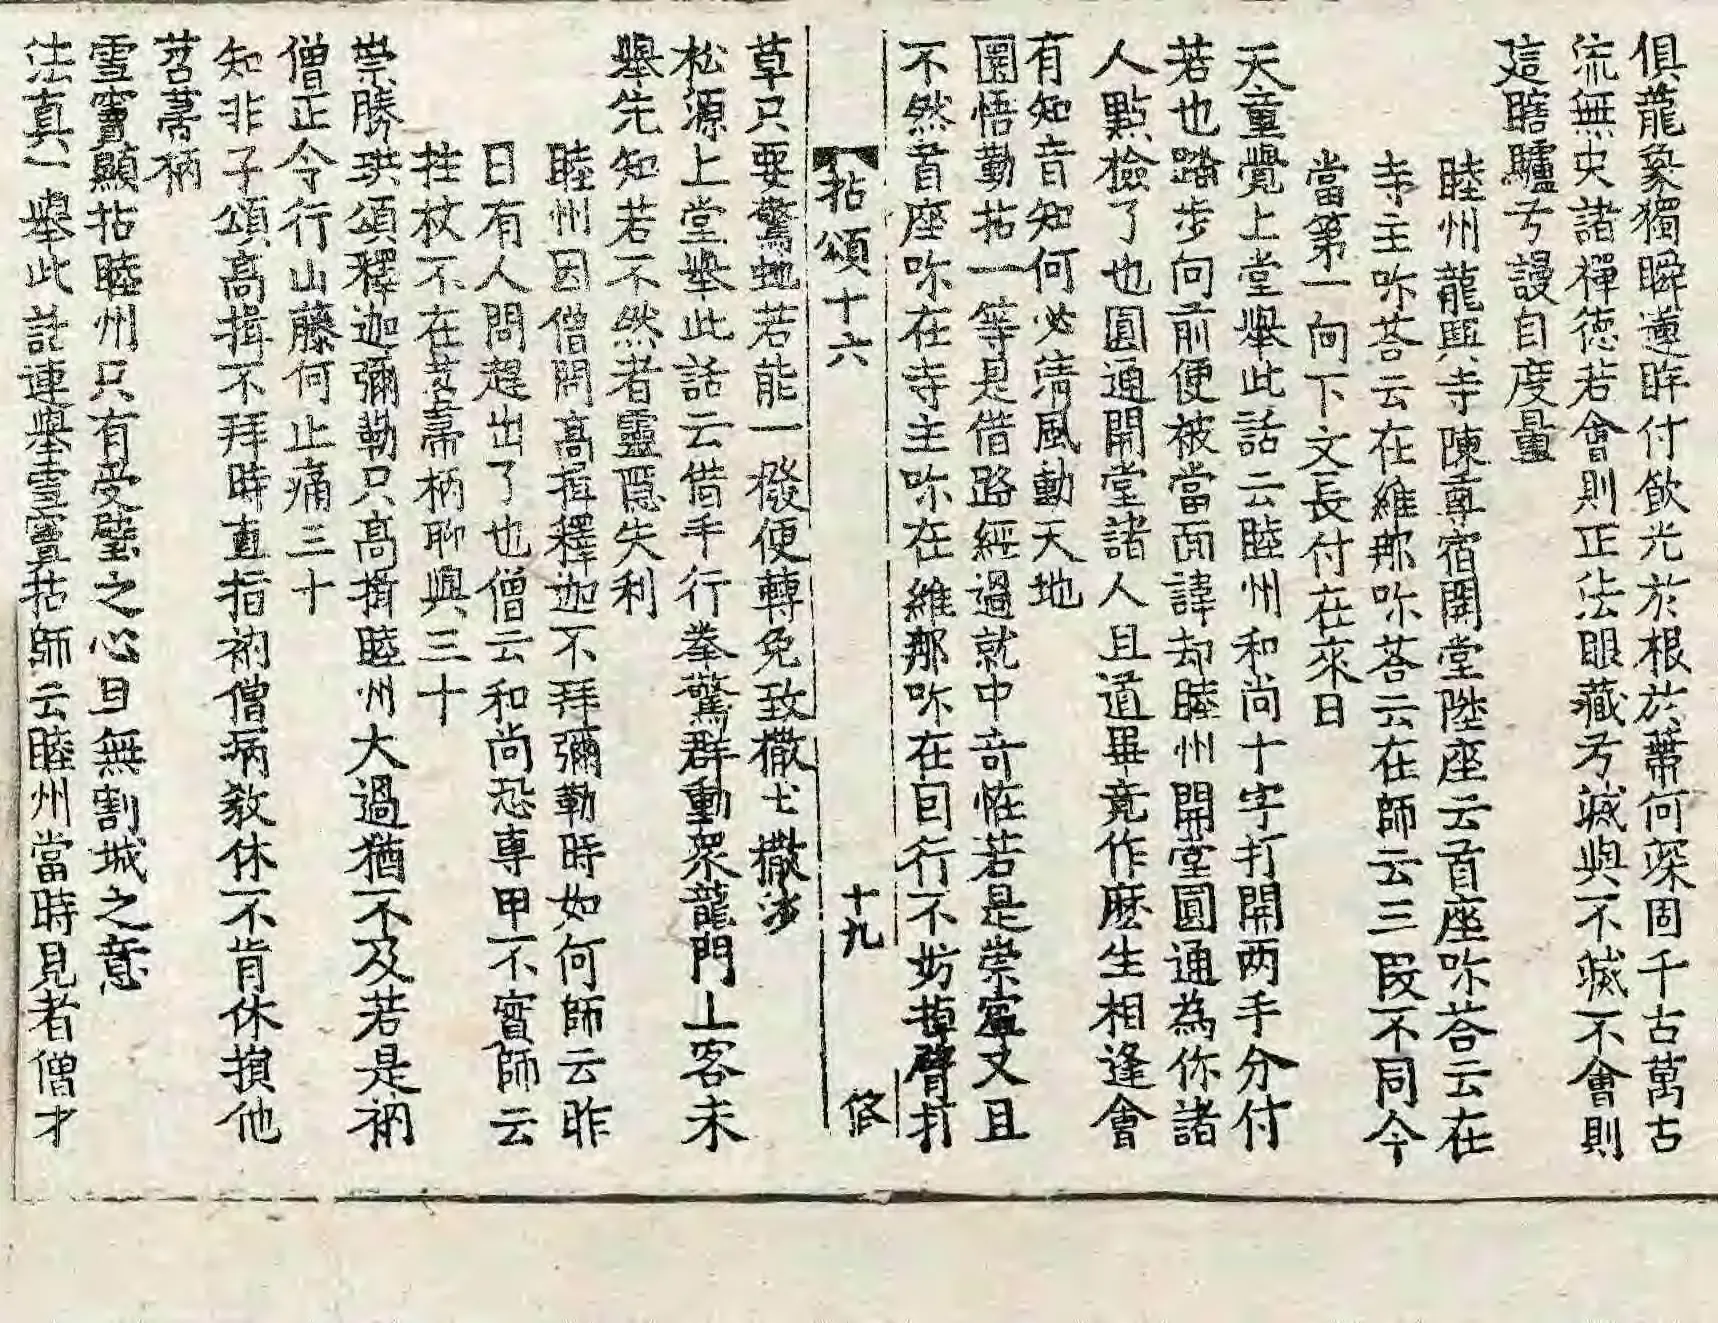 俱龍象獨瞬蓮眸付飲光於根於蔕何深固千古萬古
流無史諸禪德若會則正法眼藏兮滅與不滅不會則
這瞎驢兮謾自度量
睦州龍興寺陳尊宿開堂陞座云首座㖿荅云在
寺主㖿荅云在維那㖿荅云在師云三段不同今
當第一向下文長付在來日
天童覺上堂擧此話云睦州和尚十字打開兩手分付
若也踏步向前便被當面諱却睦州開堂圓通為你諸
人點檢了也圓通開堂諸人且道畢竟作麽生相逢會
有知音知何必淸風動天地
圜悟勤拈一等是借路經過就中奇恠若是崇寧又且
不然首座㖿在寺主㖿在維那㖿在囙行不妨掉臂打
拈頌十六 十九 修
草只要驚虵若能一撥便轉免致撒土撒沙
松源上堂擧此話云借手行拳驚群動衆龍門上客未
擧先知若不然者靈隱失利
睦州因僧問高揖釋迦不拜彌勒時如何師云昨
日有人問趂出了也僧云和尚恐專甲不實師云
拄杖不在苕菷柄聊與三十
崇勝珙頌釋迦彌勒只高揖睦州大過猶不及若是衲
僧正令行山藤何止痛三十
知非子頌高揖不拜時直指衲僧病教休不肯休損他
苕菷柄
雪竇顯拈睦州只有受璧之心且無割城之意
法眞一擧此話連擧雪竇拈師云睦州當時見者僧才